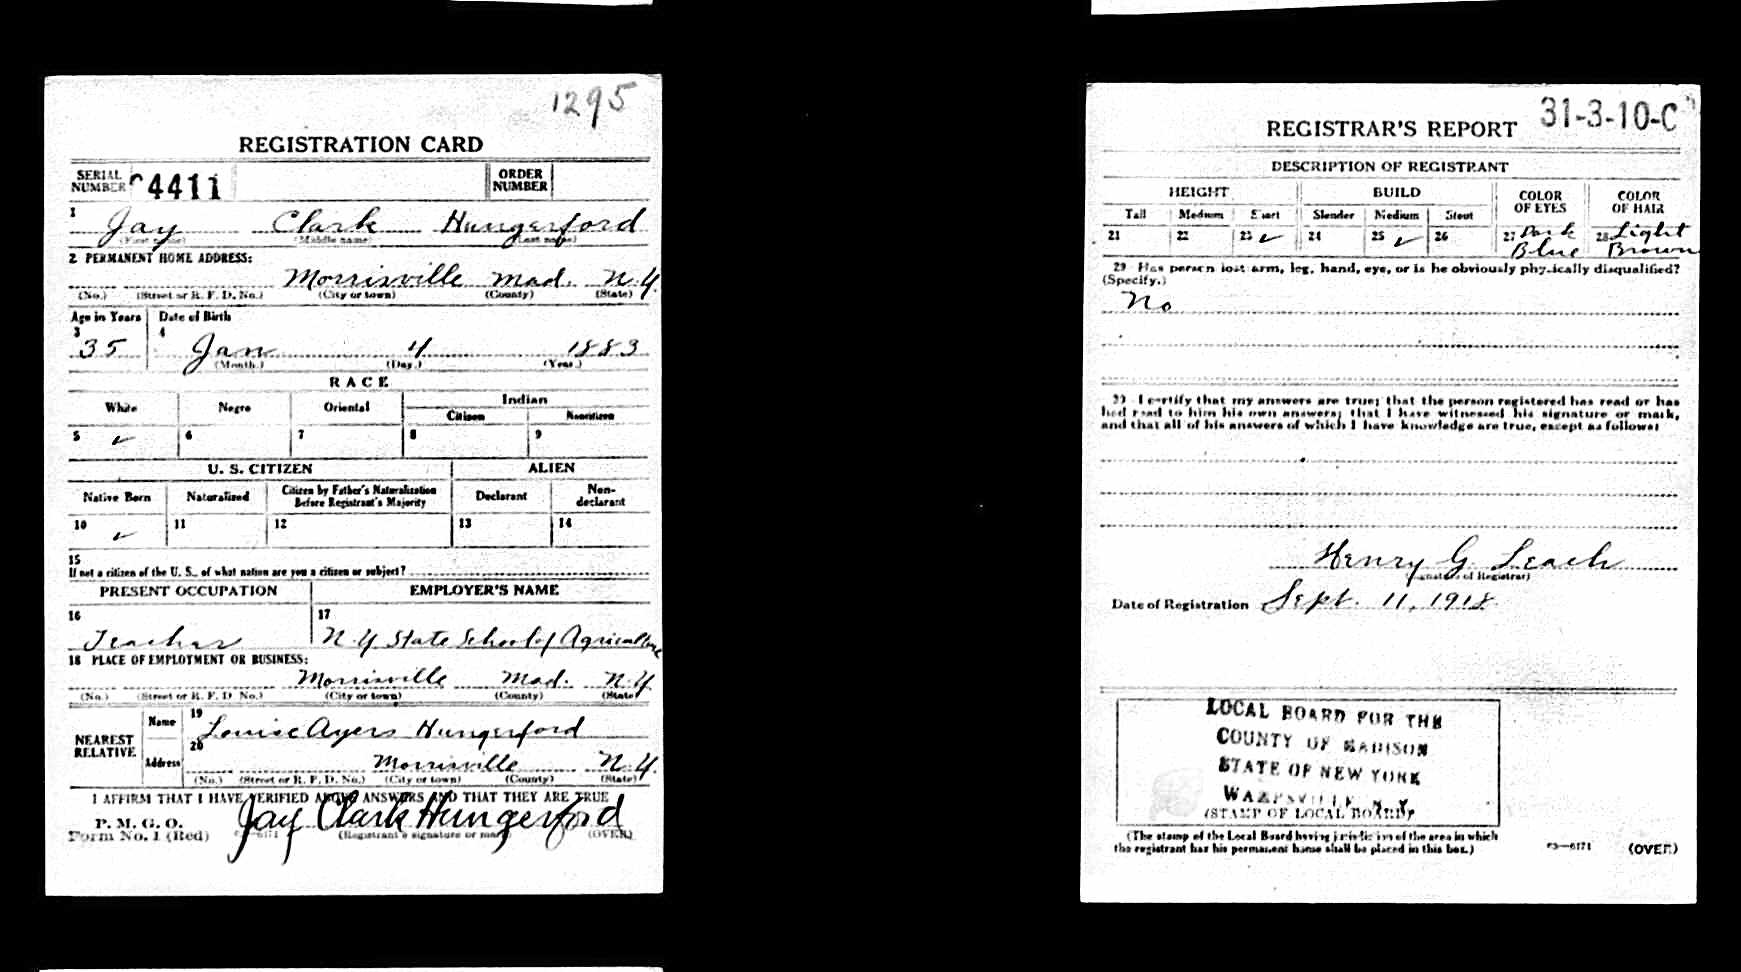 1295
REGISTRATION CARD
SERIAL NUMBER 4411 ORDER NUMBER
1 Jay Clark Hungerford
(First name) (Middle name) (Last name)
2 PERMANENT HOME ADDRESS:
Morrisville Mad. N.Y.
(No.) (Street or R. F. D. No.) (City or town) (County) (State)
Age in Years Date of Birth
3 4
35 Jan 4 1883
(Month.) (Day.) (Year.)
RACE
White Negro Oriental Indian
Citizen Noncitizen
5 ✓ 6 7 8 9
U. S. CITIZEN ALIEN
Native Born Naturalized Citizen by Father's Naturalization Before Registrant's Majority Declarant Non-declarant
10 ✓ 11 12 13 14
15
If not a citizen of the U. S., of what nation are you a citizen or subject?
PRESENT OCCUPATION EMPLOYER'S NAME
16 17
Teacher N.Y. State School of Agriculture
18 PLACE OF EMPLOYMENT OR BUSINESS:
Morrisville Mad. N.Y.
(No.) (Street or R. F. D. No.) (City or town) (County) (State)
NEAREST RELATIVE Name 19 Louise Ayers Hungerford
Address 20 Morrisville N.Y.
(No.) (Street or R. F. D. No.) (City or town) (County) (State)
I AFFIRM THAT I HAVE VERIFIED ABOVE ANSWERS AND THAT THEY ARE TRUE
P. M. G. O.
Form No. 1 (Red) Jay Clark Hungerford
(Registrant's signature or mark) (OVER)
31-3-10-C
REGISTRAR'S REPORT
DESCRIPTION OF REGISTRANT
HEIGHT BUILD COLOR OF EYES COLOR OF HAIR
Tall Medium Short Slender Medium Stout
21 22 23 ✓ 24 25 ✓ 26 27 Dark Blue 28 Light Brown
29 Has person lost arm, leg, hand, eye, or is he obviously physically disqualified?
(Specify.)
No
30 I certify that my answers are true; that the person registered has read or has
had read to him his own answers; that I have witnessed his signature or mark,
and that all of his answers of which I have knowledge are true, except as follows:
Henry G. Leach
(Signature of Registrar)
Date of Registration Sept. 11, 1918
LOCAL BOARD FOR THE
COUNTY OF MADISON
STATE OF NEW YORK
WAMPSVILLE, N. Y.
(STAMP OF LOCAL BOARD)
(The stamp of the Local Board having jurisdiction of the area in which
the registrant has his permanent home shall be placed in this box.)
03—6171 (OVER)